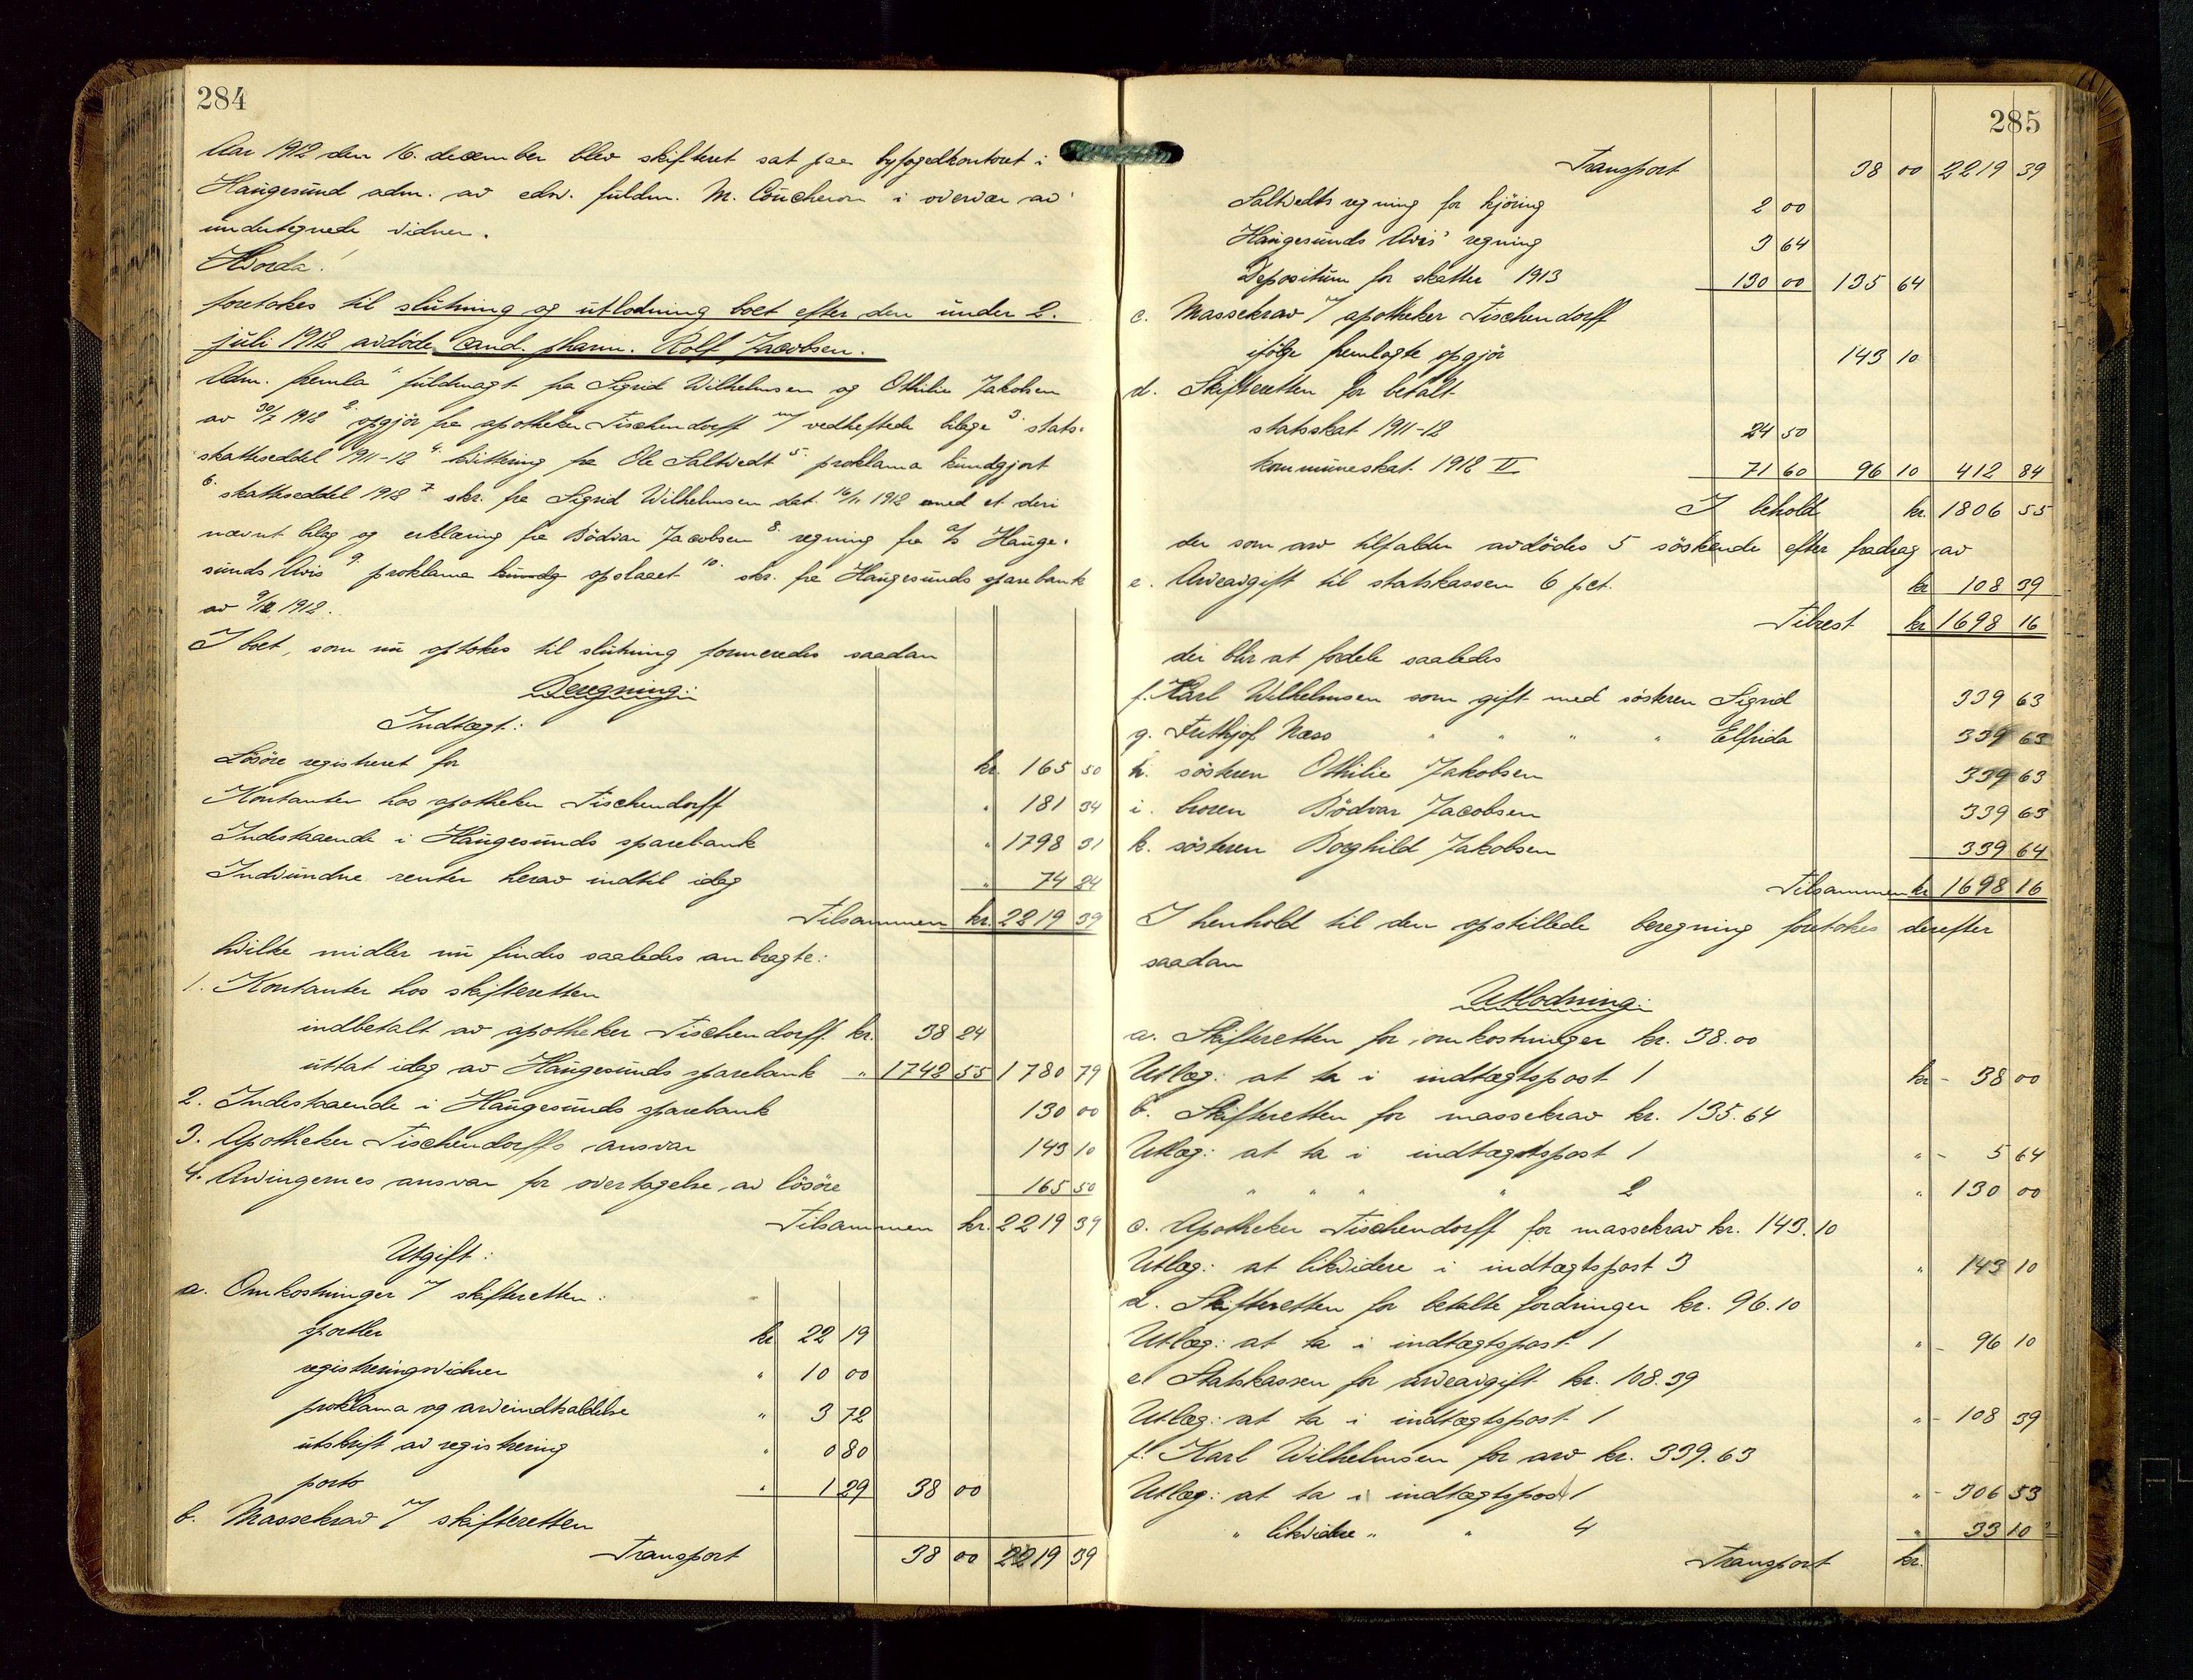 284
Aar 1912 den 16. december blev skifteret sat paa byfogedkontoret i
Haugesund adm. av edsv. fuldm. M. Coucheron i overvær av
undertegnede vidner.
Hvorda!
foretokes til slutning og utlodning boet efter den under 2.
juli 1912 avdöde cand. pharm. Rolf Jacobsen.
Adm. fremla 1. fuldmagt fra Sigrid Wilhelmsen og Othilie Jakobsen
av 30/7 1912 2. opgjör fra apotheker Tischendorff m/ vedheftede bilage 3. stats-
skatteseddel 1911-12 4. kvittering fra Ole Saltvedt 5. proklama kundgjort
6. skatteseddel 1912 7. skr. fra Sigrid Wilhelmsen dat. 16/11 1912 med et deri
nævnt bilag og erklæring fra Bödvar Jacobsen 8. regning fra A/S Hauge-
sunds Avis 9. proklama kundg opslaaet 10. skr. fra Haugesunds sparebank
av 9/12 1912.
I boet, som nu optokes til slutning formeredes saadan
Beregning:
Indtægt:
Lösöre registreret for kr. 165 50
Kontanter hos apotheker Tischendorff " 181 34
Indestaaende i Haugesunds sparebank " 1798 31
Indvundne renter herav indtil idag " 74 24
Tilsammen kr. 2219 39
hvilke midler nu findes saaledes anbragte:
1. Kontanter hos skifteretten
indbetalt av apotheker Tischendorff kr. 38 24
uttat idag av Haugesunds sparebank " 1742 55 1780 79
2. Indestaaende i Haugesunds sparebank 130 00
3. Apotheker Tischendorffs ansvar 143 10
4. Arvingernes ansvar for overtagelse av lösöre 165 50
Tilsammen kr. 2219 39
Utgift:
a. Omkostninger T/ skifteretten:
sportler kr 22 19
registreringsvidner " 10 00
proklama og arveindkaldelse " 3 72
utskrift av registrering " 0 80
porto " 1 29 38 00
b. Massekrav T/ skifteretten
Transport 38 00 2219 39
285
Transport 38 00 2219 39
Saltvedts regning for kjöring 2 00
Haugesunds Avis' regning 3 64
Depositum for skatter 1913 130 00 135 64
c. Massekrav T/ apotheker Tischendorff
ifölge fremlagte opgjör 143 10
d. Skifteretten for betalt
statsskat 1911-12 24 50
kommuneskat 1912 II 71 60 96 10 412 84
I behold kr. 1806 55
der som arv tilfalder avdödes 5 söskende efter fradrag av
e. Arveavgift til statskassen 6 pct. kr 108 39
Tilrest kr 1698 16
der blir at fordele saaledes
f. Karl Wilhelmsen som gift med sösteren Sigrid 339 63
g. Frithjof Næss " " " " Elfrida 339 63
h. sösteren Othilie Jakobsen 339 63
i. broren Bödvar Jacobsen 339 63
k. sösteren Borghild Jakobsen 339 64
Tilsammen kr 1698 16
I henhold til den opstillede beregning foretokes derefter
saadan
Utlodning:
a. Skifteretten for omkostninger kr. 38.00
Utlæg: at ta i indtægtspost 1 kr - 38 00
b. Skifteretten for massekrav kr. 135.64
Utlæg: at ta i indtægtspost 1 " - 5 64
" " " " 2 " 130 00
c. Apotheker Tischendorff for massekrav kr. 143.10
Utlæg: at likvidere i indtægtspost 3 " 143 10
d. Skifteretten for betalte fordringer kr. 96.10
Utlæg: at ta i indtægtspost 1 " - 96 10
e. Statskassen for arveavgift kr. 108.39
Utlæg: at ta i indtægtspost 1 " - 108 39
f. Karl Wilhelmsen for arv kr. 339.63
Utlæg: at ta i indtægtspost 1 " - 306 53
" likvidere " " 4 " 33 10
Transport kr.